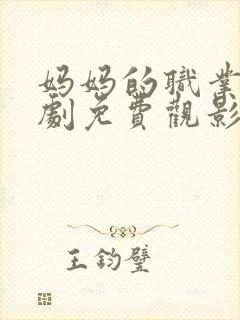 妈妈的職業
劇免費觀影
王鈞璧